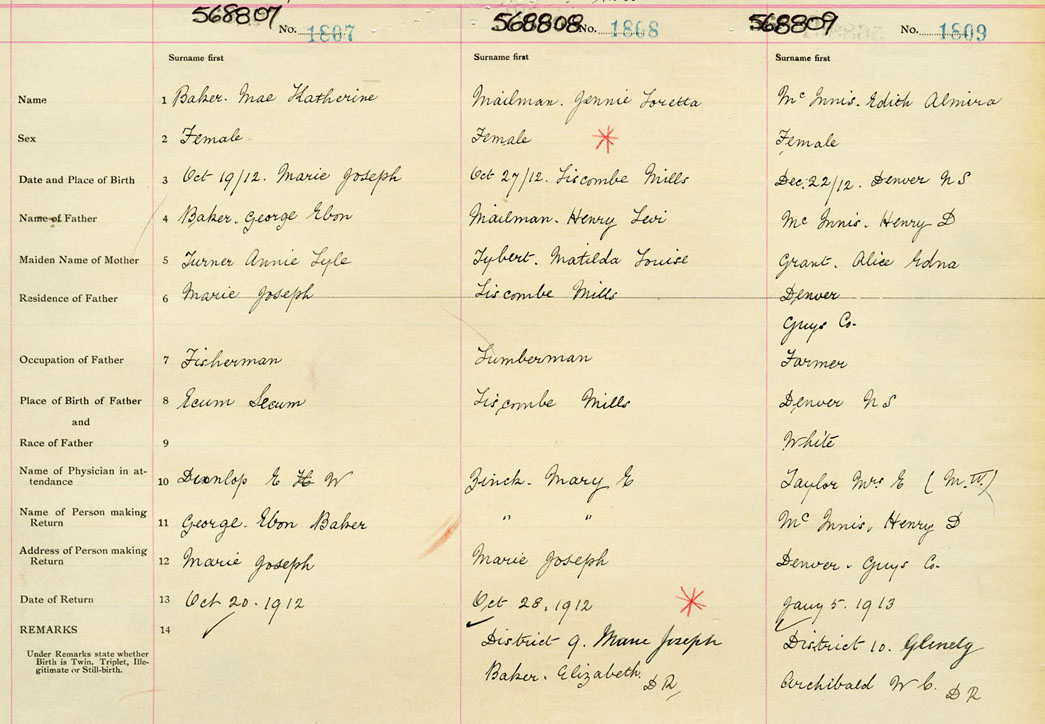 568807 No. 1807 568808 No. 1808 568809 No. 1809
Surname first Surname first Surname first
Name 1 Baker. Mae Katherine Mailman. Jennie Loretta Mc Innis. Edith Almira
Sex 2 Female Female Female
Date and Place of Birth 3 Oct 19/12. Marie Joseph Oct 27/12. Liscombe Mills Dec. 22/12. Denver N S
Name of Father 4 Baker. George Ebon Mailman. Henry Levi Mc Innis. Henry D
Maiden Name of Mother 5 Turner Annie Lyle Tybert. Matilda Louise Grant. Alice Edna
Residence of Father 6 Marie Joseph Liscombe Mills Denver
Guys Co.
Occupation of Father 7 Fisherman Lumberman Farmer
Place of Birth of Father 8 Ecum Secum Liscombe Mills Denver N S
and
Race of Father 9 White
Name of Physician in at-
tendance 10 Dunlop E H W Zinck. Mary E Taylor Mrs E (M.W)
Name of Person making
Return 11 George. Ebon Baker " " Mc Innis, Henry D
Address of Person making
Return 12 Marie Joseph Marie Joseph Denver. Guys Co.
Date of Return 13 Oct 20. 1912 Oct 28, 1912 Jany 5. 1913
REMARKS 14 District 9. Marie Joseph District 10. Glenelg
Under Remarks state whether
Birth is Twin, Triplet, Ille-
gitimate or Still-birth.
Baker. Elizabeth. D R, Archibald W C. D R